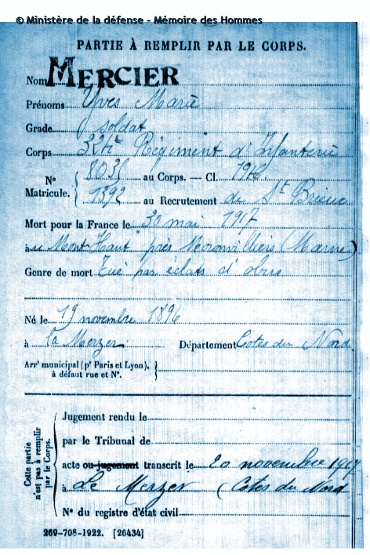 © Ministère de la défense - Mémoire des Hommes
PARTIE À REMPLIR PAR LE CORPS.
Nom MERCIER
Prénoms Yves Marie
Grade soldat
Corps Régiment d'Infanterie
N° Matricule. { 8035 au Corps. — Cl. 1916
1392 au Recrutement de St Brieuc
Mort pour la France le 30 mai 1917
à u Mont Haut près Moronvilliers (Marne)
Genre de mort Tué par éclats d'obus
Né le 19 novembre 1896
à La Merzer Département Cotes du Nord
Arrt municipal (pr Paris et Lyon),
à défaut rue et N°.
Cette partie n'est pas à remplir par le Corps.
Jugement rendu le
par le Tribunal de
acte ou jugement transcrit le 20 novembre 1917
à Le Merzer (Cotes du Nord
N° du registre d'état civil
269-708-1922. [26434]